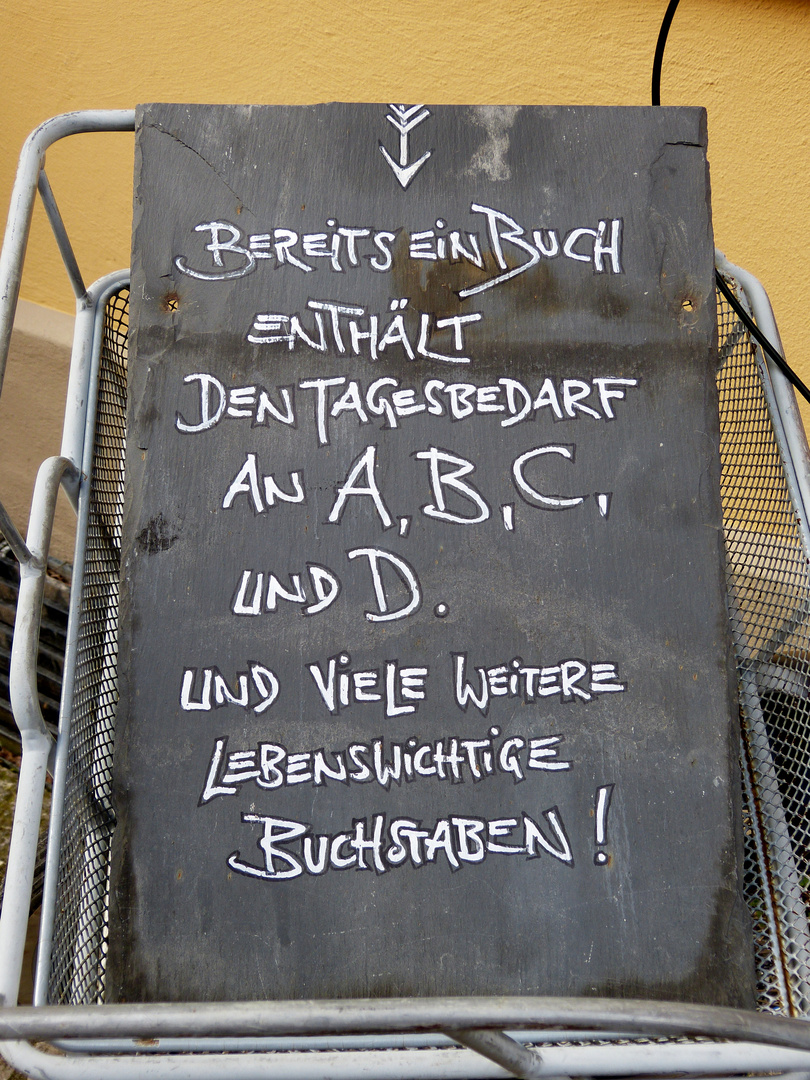 BEREITS EIN BUCH
ENTHÄLT
DEN TAGESBEDARF
AN A, B, C,
UND D.
UND VIELE WEITERE
LEBENSWICHTIGE
BUCHSTABEN!